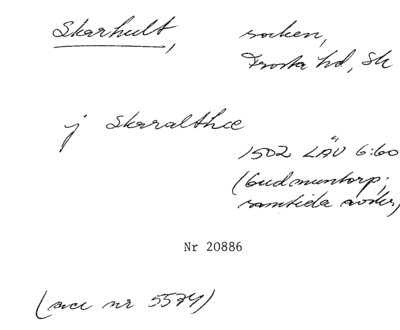 Skarhult, socken,
Frosta hd, Sk
j Skaralthce
1502 LÄU 6:60
(Gudmuntorp;
samtida avskr,)
Nr 20886
(acc nr 5574)